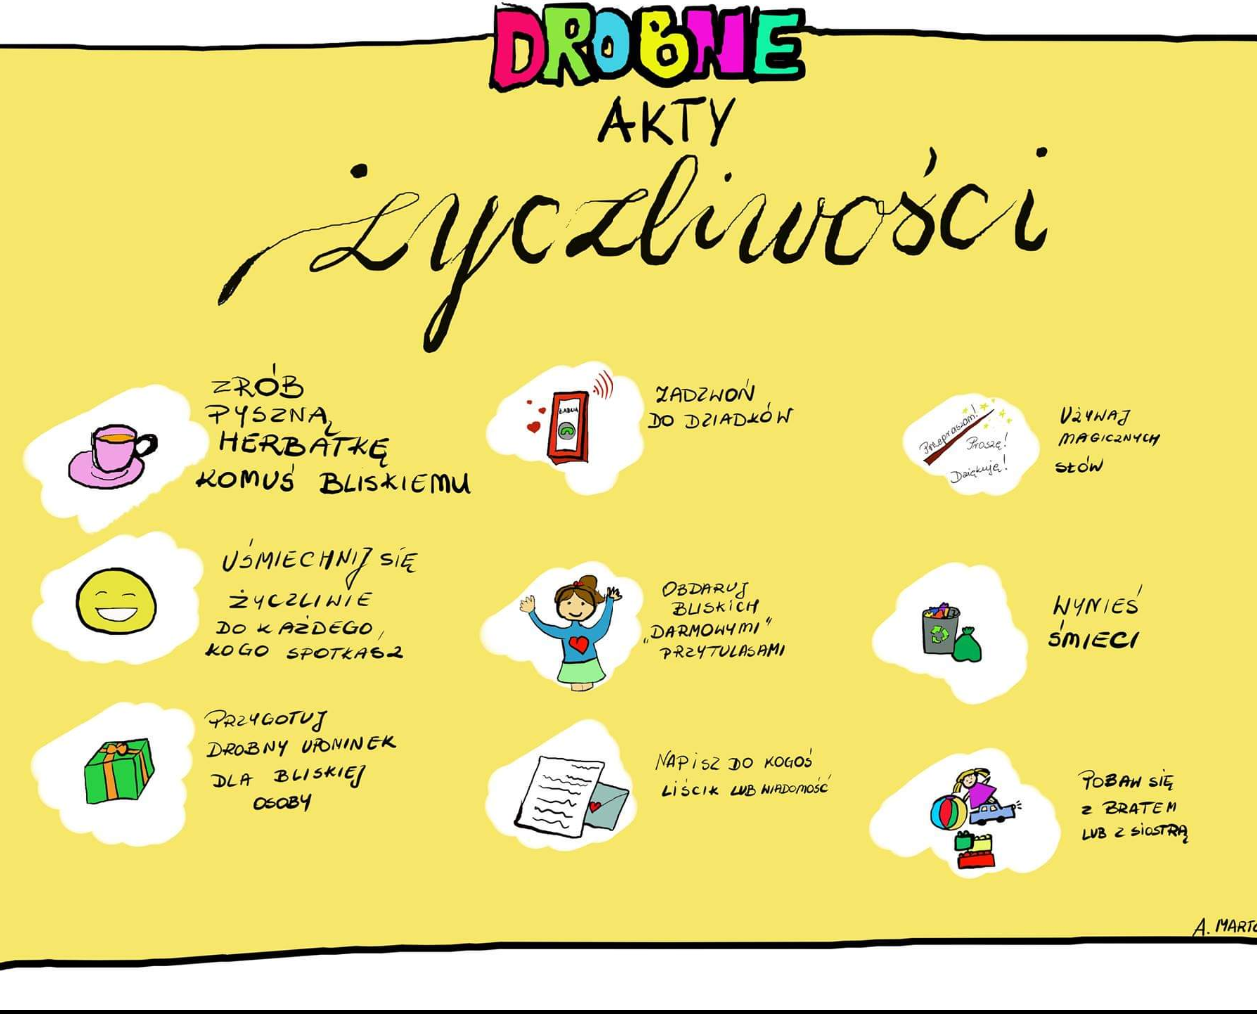 DROBNE
AKTY
życzliwości
ZRÓB
PYSZNĄ
HERBATKĘ
KOMUŚ BLISKIEMU
UŚMIECHNIJ SIĘ
ŻYCZLIWIE
DO KAŻDEGO,
KOGO SPOTKASZ
PRZYGOTUJ
DROBNY UPOMINEK
DLA BLISKIEJ
OSOBY
BABCIA
ZADZWOŃ
DO DZIADKÓW
OBDARUJ
BLISKICH
„DARMOWYMI”
PRZYTULASAMI
NAPISZ DO KOGOŚ
LIŚCIK LUB WIADOMOŚĆ
Przepraszam!
Proszę!
Dziękuję!
UŻYWAJ
MAGICZNYCH
SŁÓW
WYNIEŚ
ŚMIECI
POBAW SIĘ
Z BRATEM
LUB Z SIOSTRĄ
A.